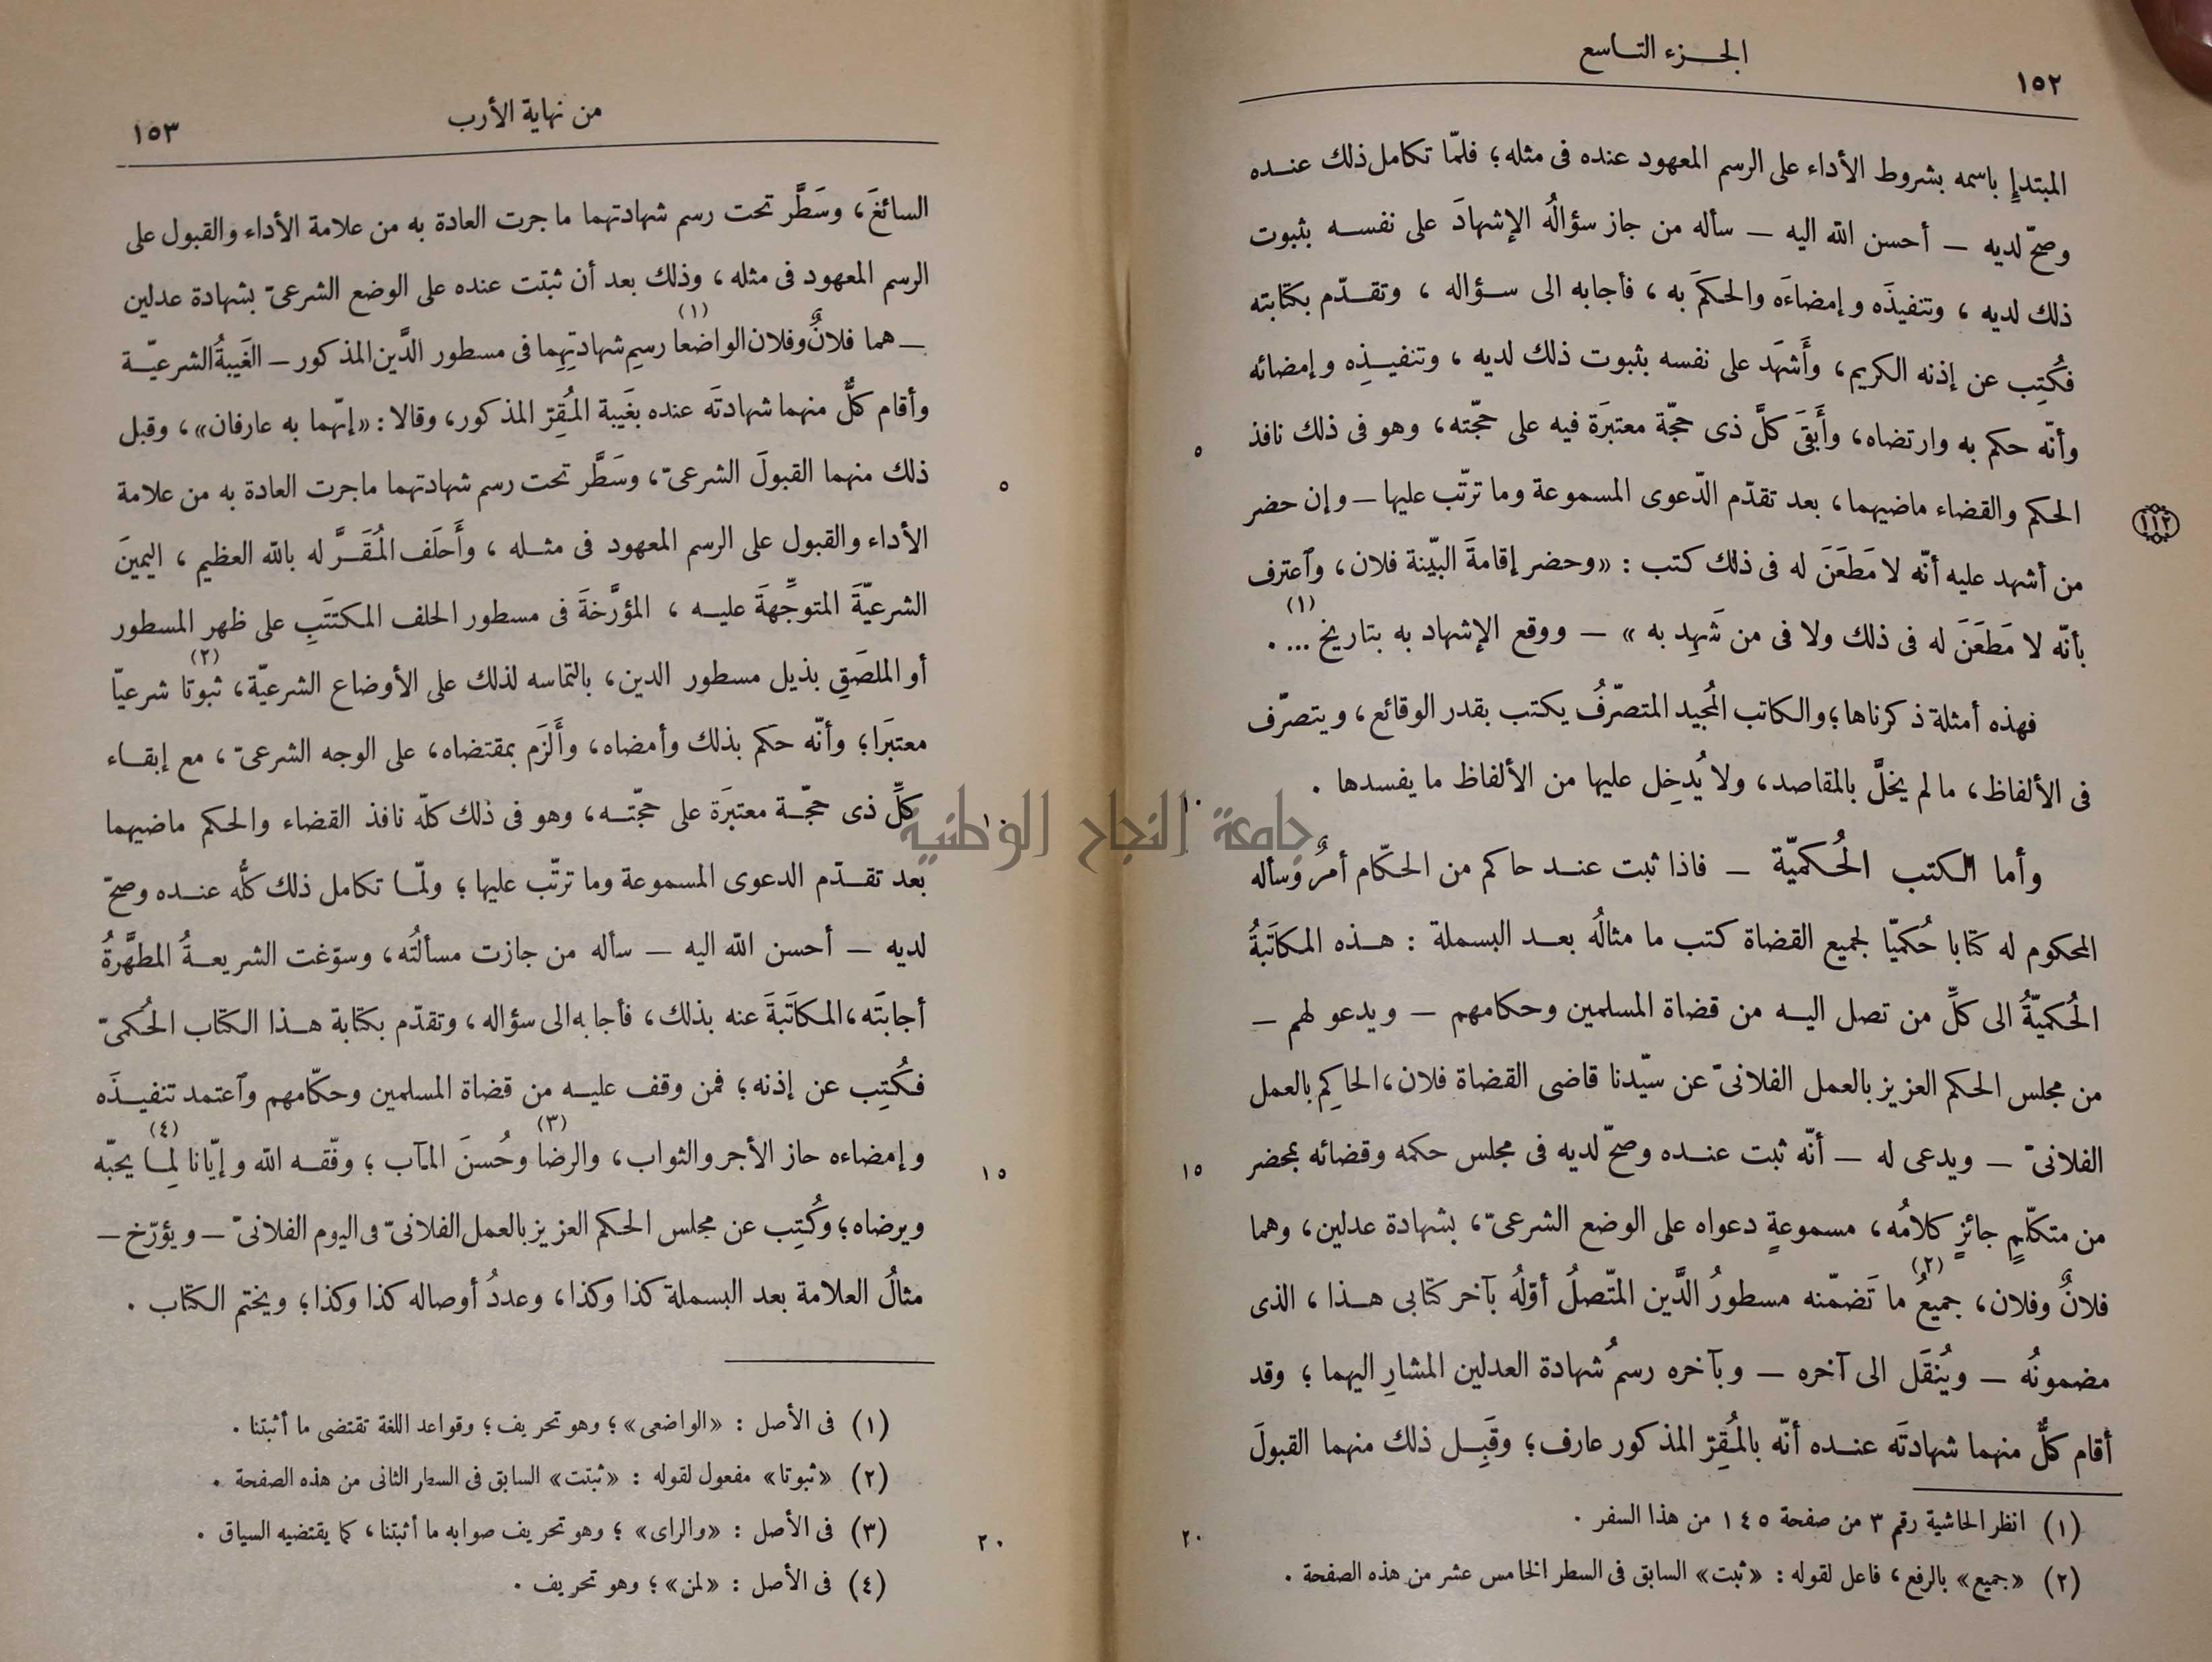 الجزء التاسع
١٥٢
المبتدإِ باسمه بشروط الأداء على الرسم المعهود عنده فى مثله؛ فلمّا تكامل ذلك عنده
وصحّ لديه — أحسن الله اليه — سأله من جاز سؤالُه الإشهادَ على نفسه بثبوت
ذلك لديه، وتنفيذَه وإمضاءَه والحكمَ به، فأجابه الى سؤاله، وتقدّم بكتابته
فكُتِب عن إذنه الكريم، وأَشهَد على نفسه بثبوت ذلك لديه، وتنفيذِه وإمضائه
وأنّه حكم به وارتضاه، وأَبقَى كلَّ ذى حجّة معتبَرة فيه على حجّته، وهو فى ذلك نافذ
٥
الحكم والقضاء ماضيهما، بعد تقدّم الدّعوى المسموعة وما ترتّب عليها — وإن حضر
١١٢
من أشهد عليه أنّه لا مَطعَنَ له فى ذلك كتب: «وحضر إقامةَ البيّنة فلان، وٱعترف
بأنّه لا مَطعَنَ له فى ذلك ولا فى من شَهِد به» — ووقع الإشهاد به بتاريخ ... (١).
فهذه أمثلة ذكرناها؛ والكاتب المُجيد المتصرّفُ يكتب بقدر الوقائع، ويتصرّف
فى الألفاظ، ما لم يخلَّ بالمقاصد، ولا يُدخِل عليها من الألفاظ ما يفسدها.
١٠
وأما الكتب الحُكميّة — فاذا ثبت عند حاكم من الحكّام أمرٌ وسأله
المحكوم له كتابا حُكميّا لجميع القضاة كتب ما مثالُه بعد البسملة: هذه المكاتَبةُ
الحُكميّةُ الى كلِّ من تصل اليه من قضاة المسلمين وحكامهم — ويدعو لهم —
من مجلس الحكم العزيز بالعمل الفلانىّ عن سيّدنا قاضى القضاة فلان، الحاكِم بالعمل
الفلانىّ — ويدعى له — أنّه ثبت عنده وصحّ لديه فى مجلس حكمه وقضائه بمحضر
١٥
من متكلّمٍ جائزٍ كلامُه، مسموعةٍ دعواه على الوضع الشرعىّ، بشهادة عدلين، وهما
فلانٌ وفلان، جميعُ (٢) ما تَضمّنه مسطورُ الدَّين المتّصلُ أوّلُه بآخر كتابى هذا، الذى
مضمونُه — ويُنقَل الى آخره — وبآخره رسمُ شهادة العدلين المشارِ اليهما؛ وقد
أقام كلٌّ منهما شهادتَه عنده أنّه بالمُقِرّ المذكور عارف؛ وقَبِل ذلك منهما القبولَ
(١) انظر الحاشية رقم ٣ من صفحة ١٤٥ من هذا السفر.
٢٠
(٢) «جميع» بالرفع، فاعل لقوله: «ثبت» السابق فى السطر الخامس عشر من هذه الصفحة.
من نهاية الأرب
١٥٣
السائغَ، وسَطَّر تحت رسم شهادتهما ما جرت العادة به من علامة الأداء والقبول على
الرسم المعهود فى مثله، وذلك بعد أن ثبتت عنده على الوضع الشرعىّ بشهادة عدلين
— هما فلانٌ وفلان الواضعا (١) رسمِ شهادتِهِما فى مسطور الدَّين المذكور — الغَيبةُ الشرعيّة
وأقام كلٌّ منهما شهادتَه عنده بغَيبة المُقِرّ المذكور، وقالا: «إنّهما به عارفان»، وقبل
ذلك منهما القبولَ الشرعىّ، وسَطَّر تحت رسم شهادتهما ما جرت العادة به من علامة
٥
الأداء والقبول على الرسم المعهود فى مثله، وأَحلَف المُقَرَّ له بالله العظيم، اليمينَ
الشرعيّةَ المتوجِّهةَ عليه، المؤرَّخةَ فى مسطور الحلف المكتتَبِ على ظهر المسطور
أو الملصَقِ بذيل مسطور الدين، بالتماسه لذلك على الأوضاع الشرعيّة، ثبوتا (٢) شرعيّا
معتبَرا؛ وأنّه حَكم بذلك وأمضاه، وأَلزَم بمقتضاه، على الوجه الشرعىّ، مع إبقاء
كلِّ ذى حجّة معتبَرة على حجّته، وهو فى ذلك كلّه نافذ القضاء والحكم ماضيهما
١٠
بعد تقدّم الدعوى المسموعة وما ترتّب عليها؛ ولمّا تكامل ذلك كلُّه عنده وصحّ
لديه — أحسن الله اليه — سأله من جازت مسألتُه، وسوّغت الشريعةُ المطهَّرةُ
أجابتَه، المكاتَبةَ عنه بذلك، فأجابه الى سؤاله، وتقدّم بكتابة هذا الكتاب الحُكمىّ
فكُتِب عن إذنه؛ فمن وقف عليه من قضاة المسلمين وحكّامهم وٱعتمد تنفيذَه
وإمضاءه حاز الأجر والثواب، والرضا (٣) وحُسنَ المآب؛ وفّقه الله وإيّانا لِما (٤) يحبّه
١٥
ويرضاه؛ وكُتِب عن مجلس الحكم العزيز بالعمل الفلانىّ فى اليوم الفلانىّ — ويؤرّخ —
مثالُ العلامة بعد البسملة كذا وكذا، وعددُ أوصاله كذا وكذا؛ ويختم الكتاب.
(١) فى الأصل: «الواضعى»؛ وهو تحريف؛ وقواعد اللغة تقتضى ما أثبتنا.
(٢) «ثبوتا» مفعول لقوله: «ثبتت» السابق فى السطر الثانى من هذه الصفحة.
(٣) فى الأصل: «والراى»؛ وهو تحريف صوابه ما أثبتنا، كما يقتضيه السياق.
٢٠
(٤) فى الأصل: «لمن»؛ وهو تحريف.
جامعة النجاح الوطنية